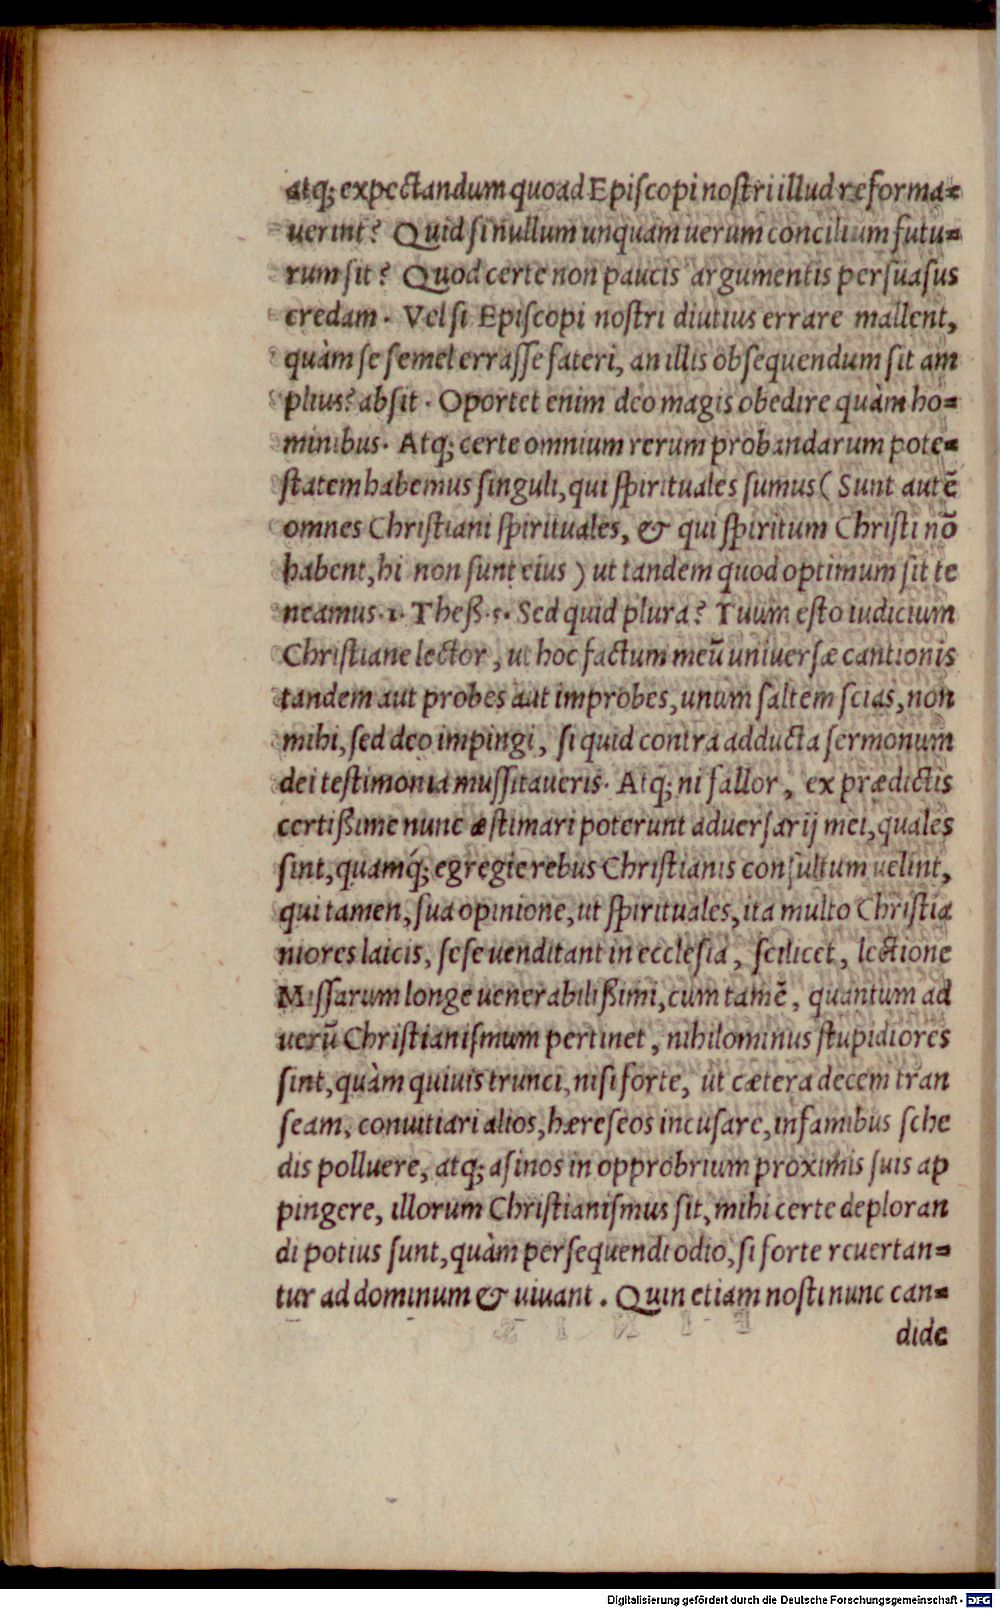 atq; expectandum quoad Episcopi nostri illud reforma=
uerint? Quid si nullum unquam uerum concilium futu=
rum sit? Quod certe non paucis argumentis persuasus
credam. Vel si Episcopi nostri diutius errare mallent,
quàm se semel errasse fateri, an illis obsequendum sit am
plius? absit. Oportet enim deo magis obedire quàm ho=
minibus. Atq; certe omnium rerum probandarum pote=
statem habemus singuli, qui spirituales sumus (Sunt autē
omnes Christiani spirituales, & qui spiritum Christi nō
habent, hi non sunt eius) ut tandem quod optimum sit te
neamus. 1. Theß. 5. Sed quid plura? Tuum esto iudicium
Christiane lector, ut hoc factum meū uniuersæ cantionis
tandem aut probes aut improbes, unum saltem scias, non
mihi, sed deo impingi, si quid contra adducta sermonum
dei testimonia mussitaueris. Atq; ni fallor, ex prædictis
certißime nunc æstimari poterunt aduersarij mei, quales
sint, quamq́; egregie rebus Christianis consultum uelint,
qui tamen, sua opinione, ut spirituales, ita multo Christia
niores laicis, sese uenditant in ecclesia, scilicet, lectione
Missarum longe uenerabilißimi, cum tamē, quantum ad
uerū Christianismum pertinet, nihilominus stupidiores
sint, quàm quiuis trunci, nisi forte, ut cætera decem tran
seam, conuitiari alios, hæreseos incusare, infamibus sche
dis polluere, atq; asinos in opprobrium proximis suis ap
pingere, illorum Christianismus sit, mihi certe deploran
di potius sunt, quàm persequendi odio, si forte reuertan=
tur ad dominum & uiuant. Quin etiam nosti nunc can=
dide
Digitalisierung gefördert durch die Deutsche Forschungsgemeinschaft - DFG